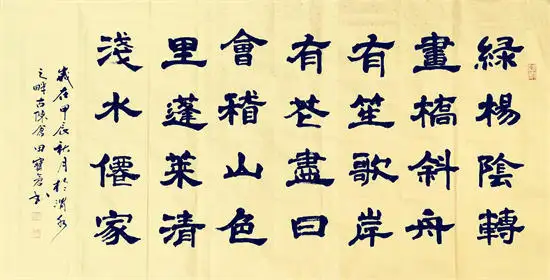 綠楊陰轉
畫橋斜舟
有笙歌岸
有花盡日
會稽山色
里蓬萊清
淺水僊家
歲在甲辰秋月於渭水
之畔古陳倉田寶書